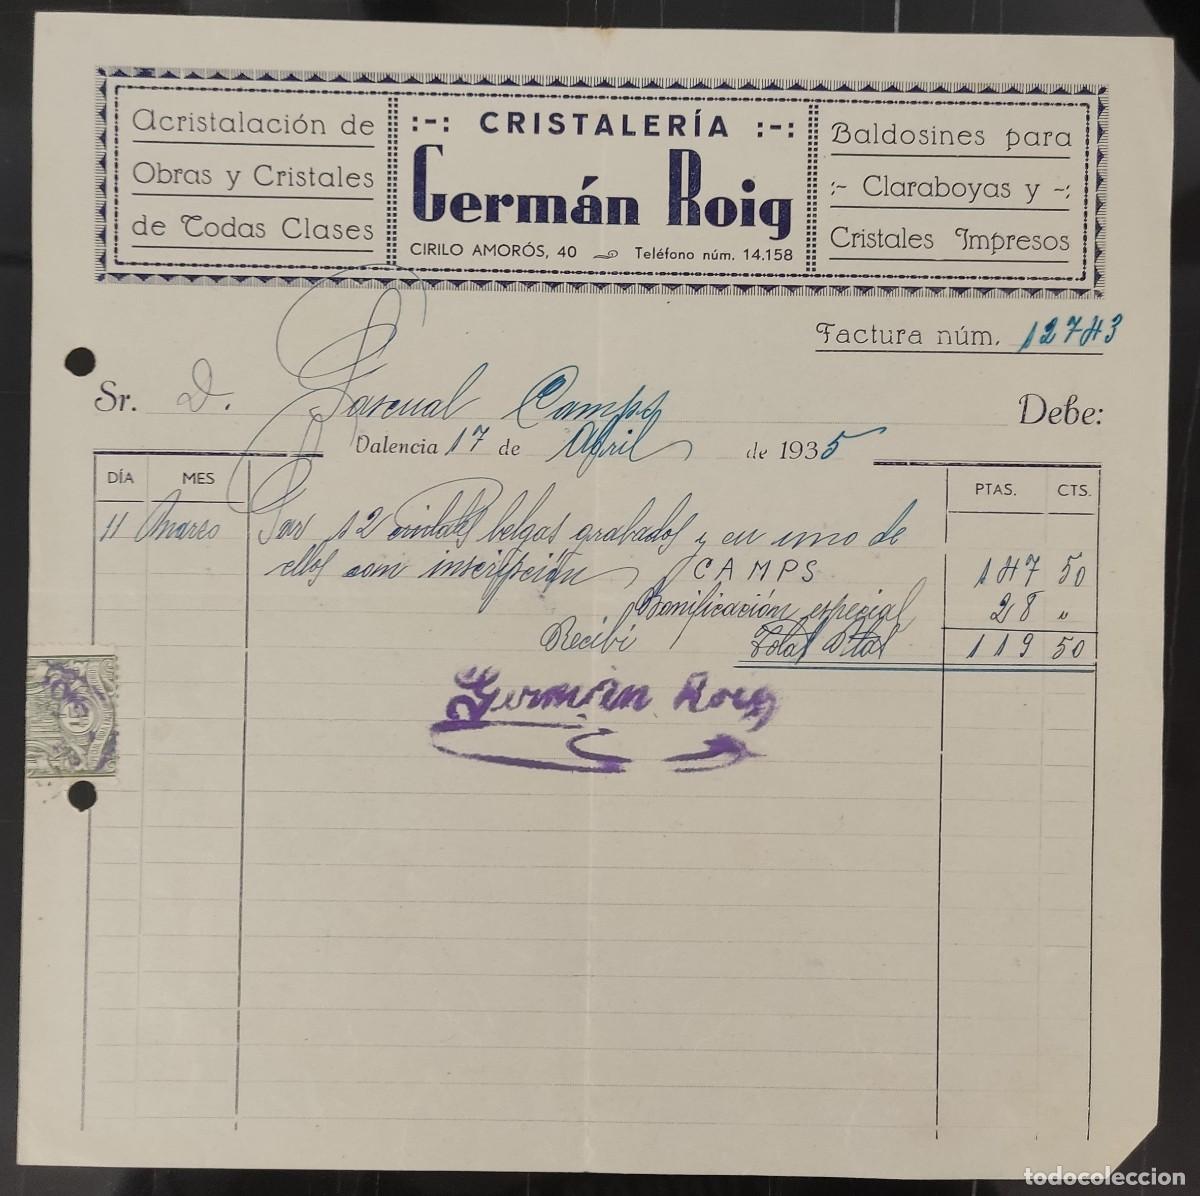 Acristalación de
Obras y Cristales
de Todas Clases
:-: CRISTALERÍA :-:
Germán Roig
CIRILO AMORÓS, 40 Teléfono núm. 14.158
Baldosines para
:- Claraboyas y -:
Cristales Impresos
Factura núm. 12743
Sr. D. Pascual Camps Debe:
Valencia 17 de Abril de 1935
DÍA MES PTAS. CTS.
11 Marzo Por 12 cristales belgas grabados y en uno de
ellos con inscripción CAMPS 147 50
Bonificación especial 28 "
Recibí Total Ptas 119 50
Germán Roig
todocoleccion